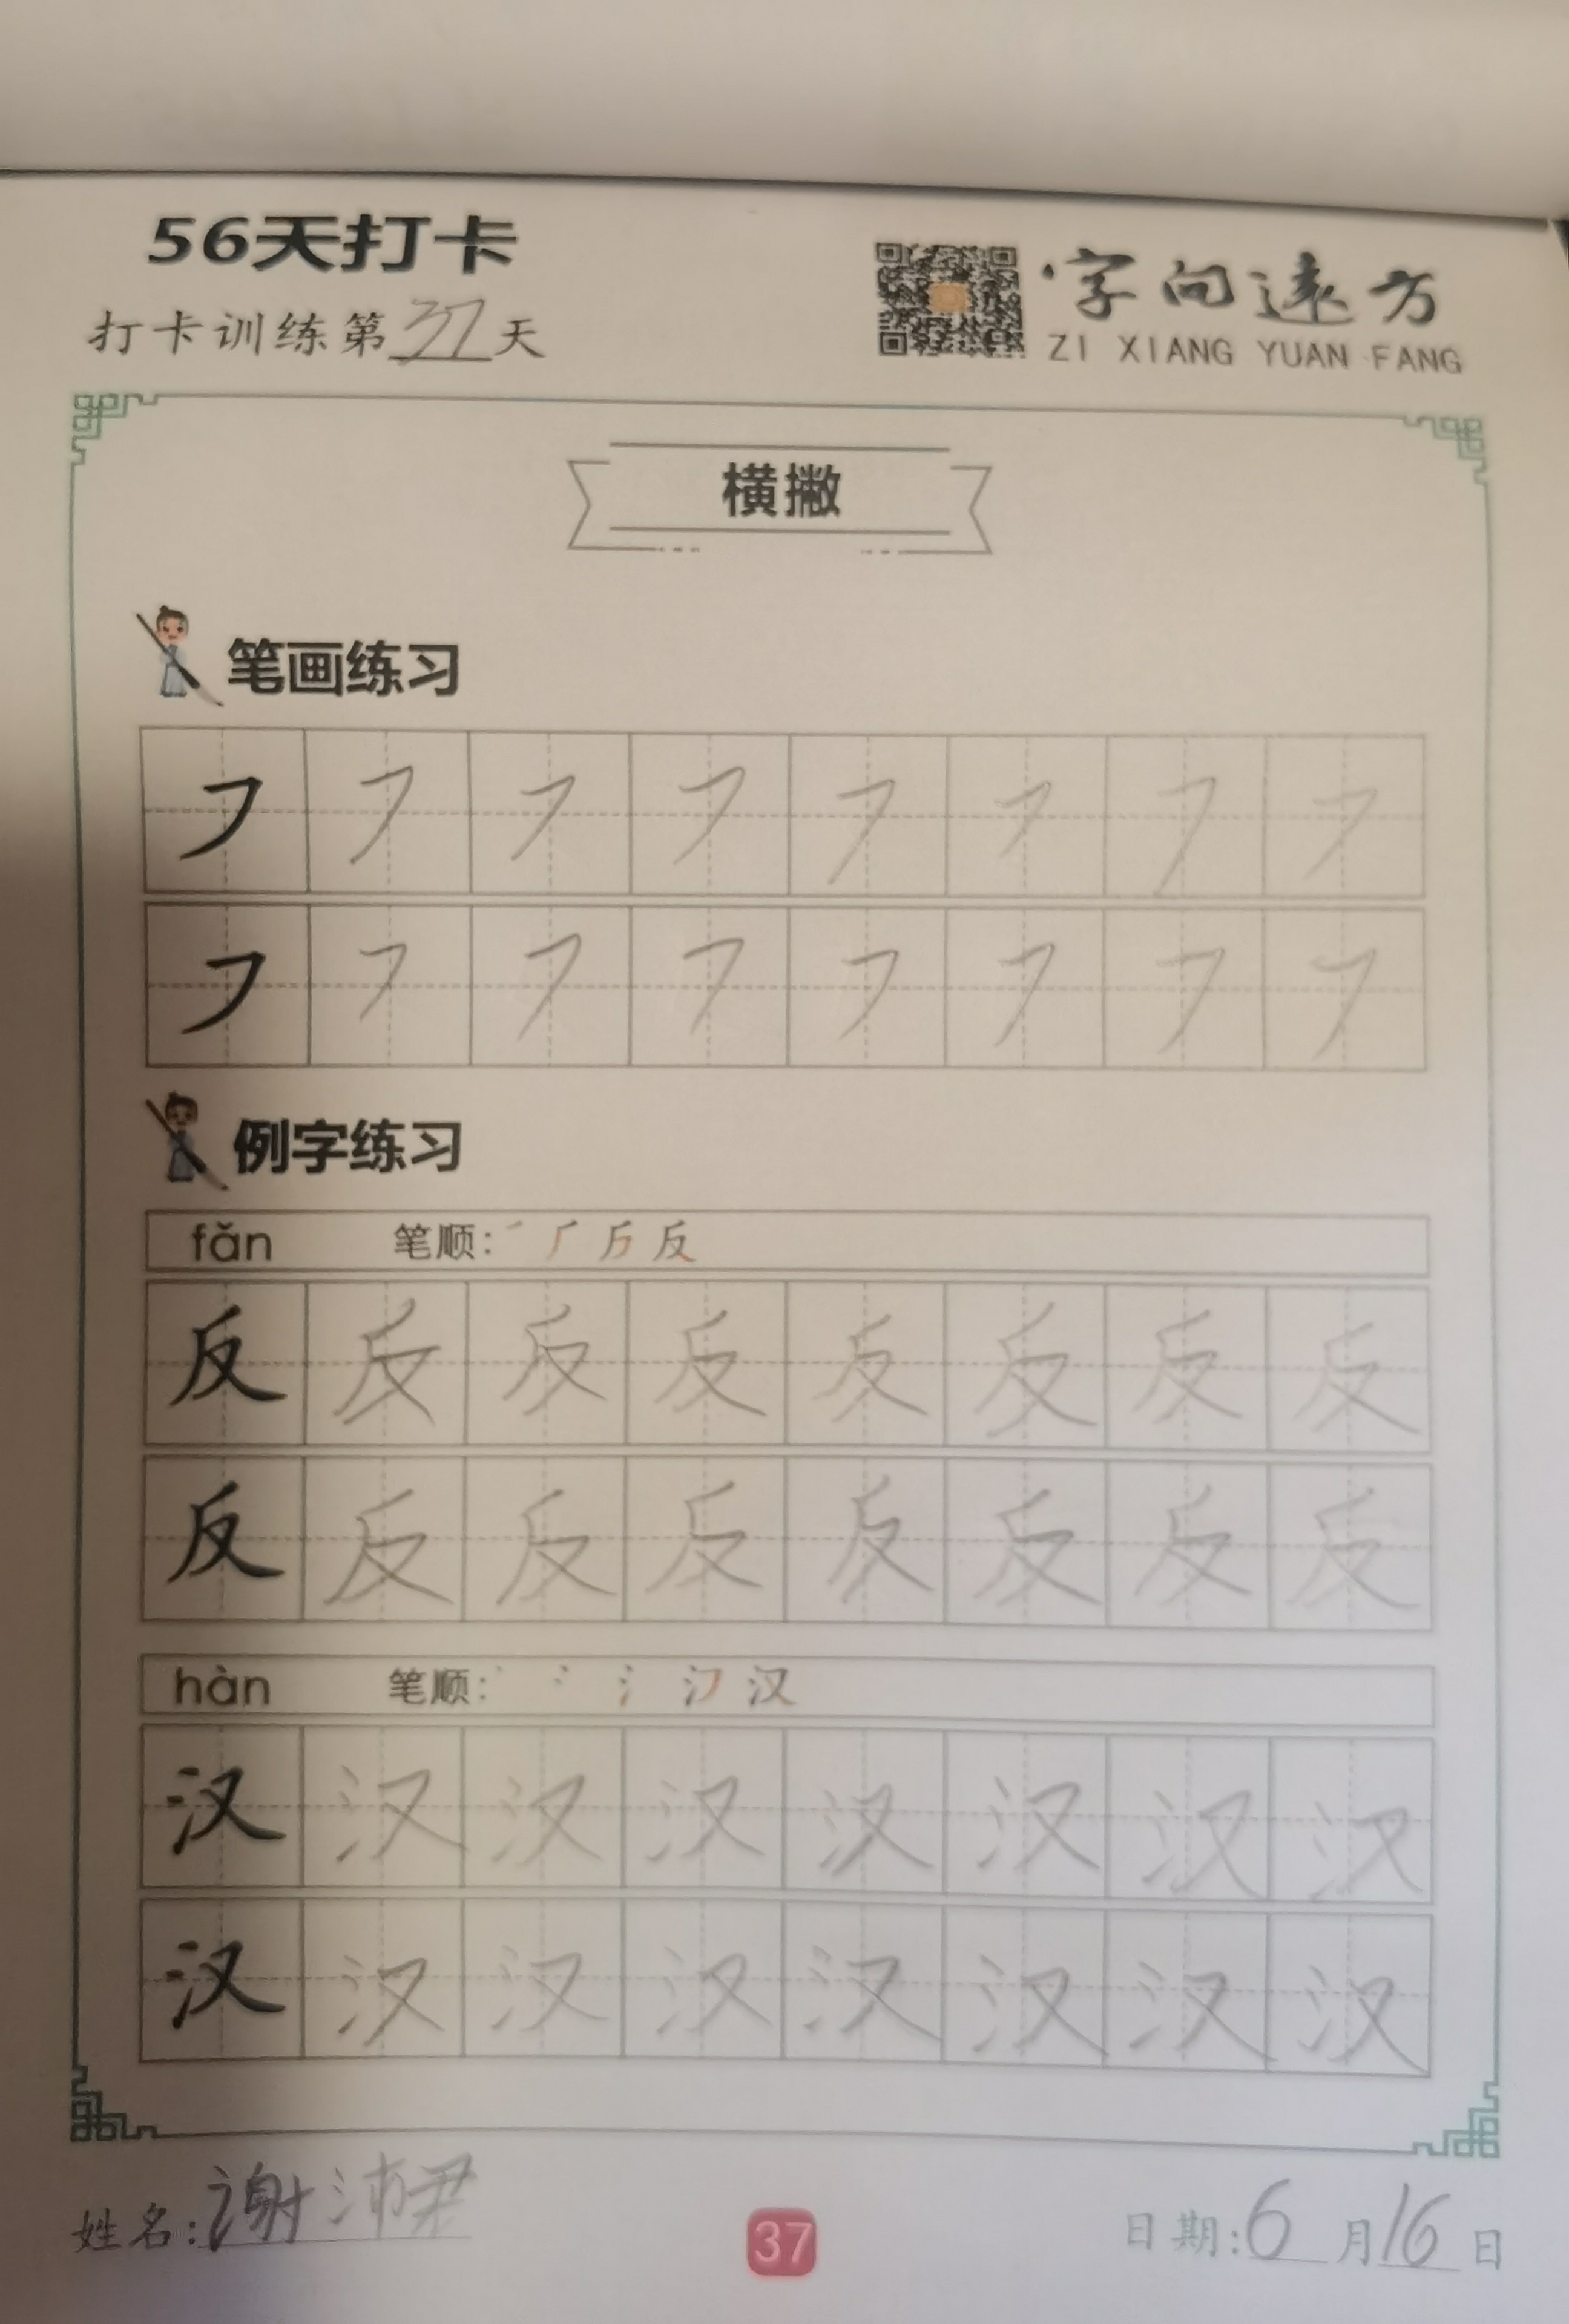 56天打卡
打卡训练第37天
字向远方
ZI XIANG YUAN FANG
横撇
笔画练习
㇇ ㇇ ㇇ ㇇ ㇇ ㇇ ㇇ ㇇
㇇ ㇇ ㇇ ㇇ ㇇ ㇇ ㇇ ㇇
例字练习
fǎn 笔顺: 反
反 反 反 反 反 反 反 反
反 反 反 反 反 反 反 反
hàn 笔顺: 汉
汉 汉 汉 汉 汉 汉 汉 汉
汉 汉 汉 汉 汉 汉 汉 汉
姓名:谢沛君
37
日期:6月16日